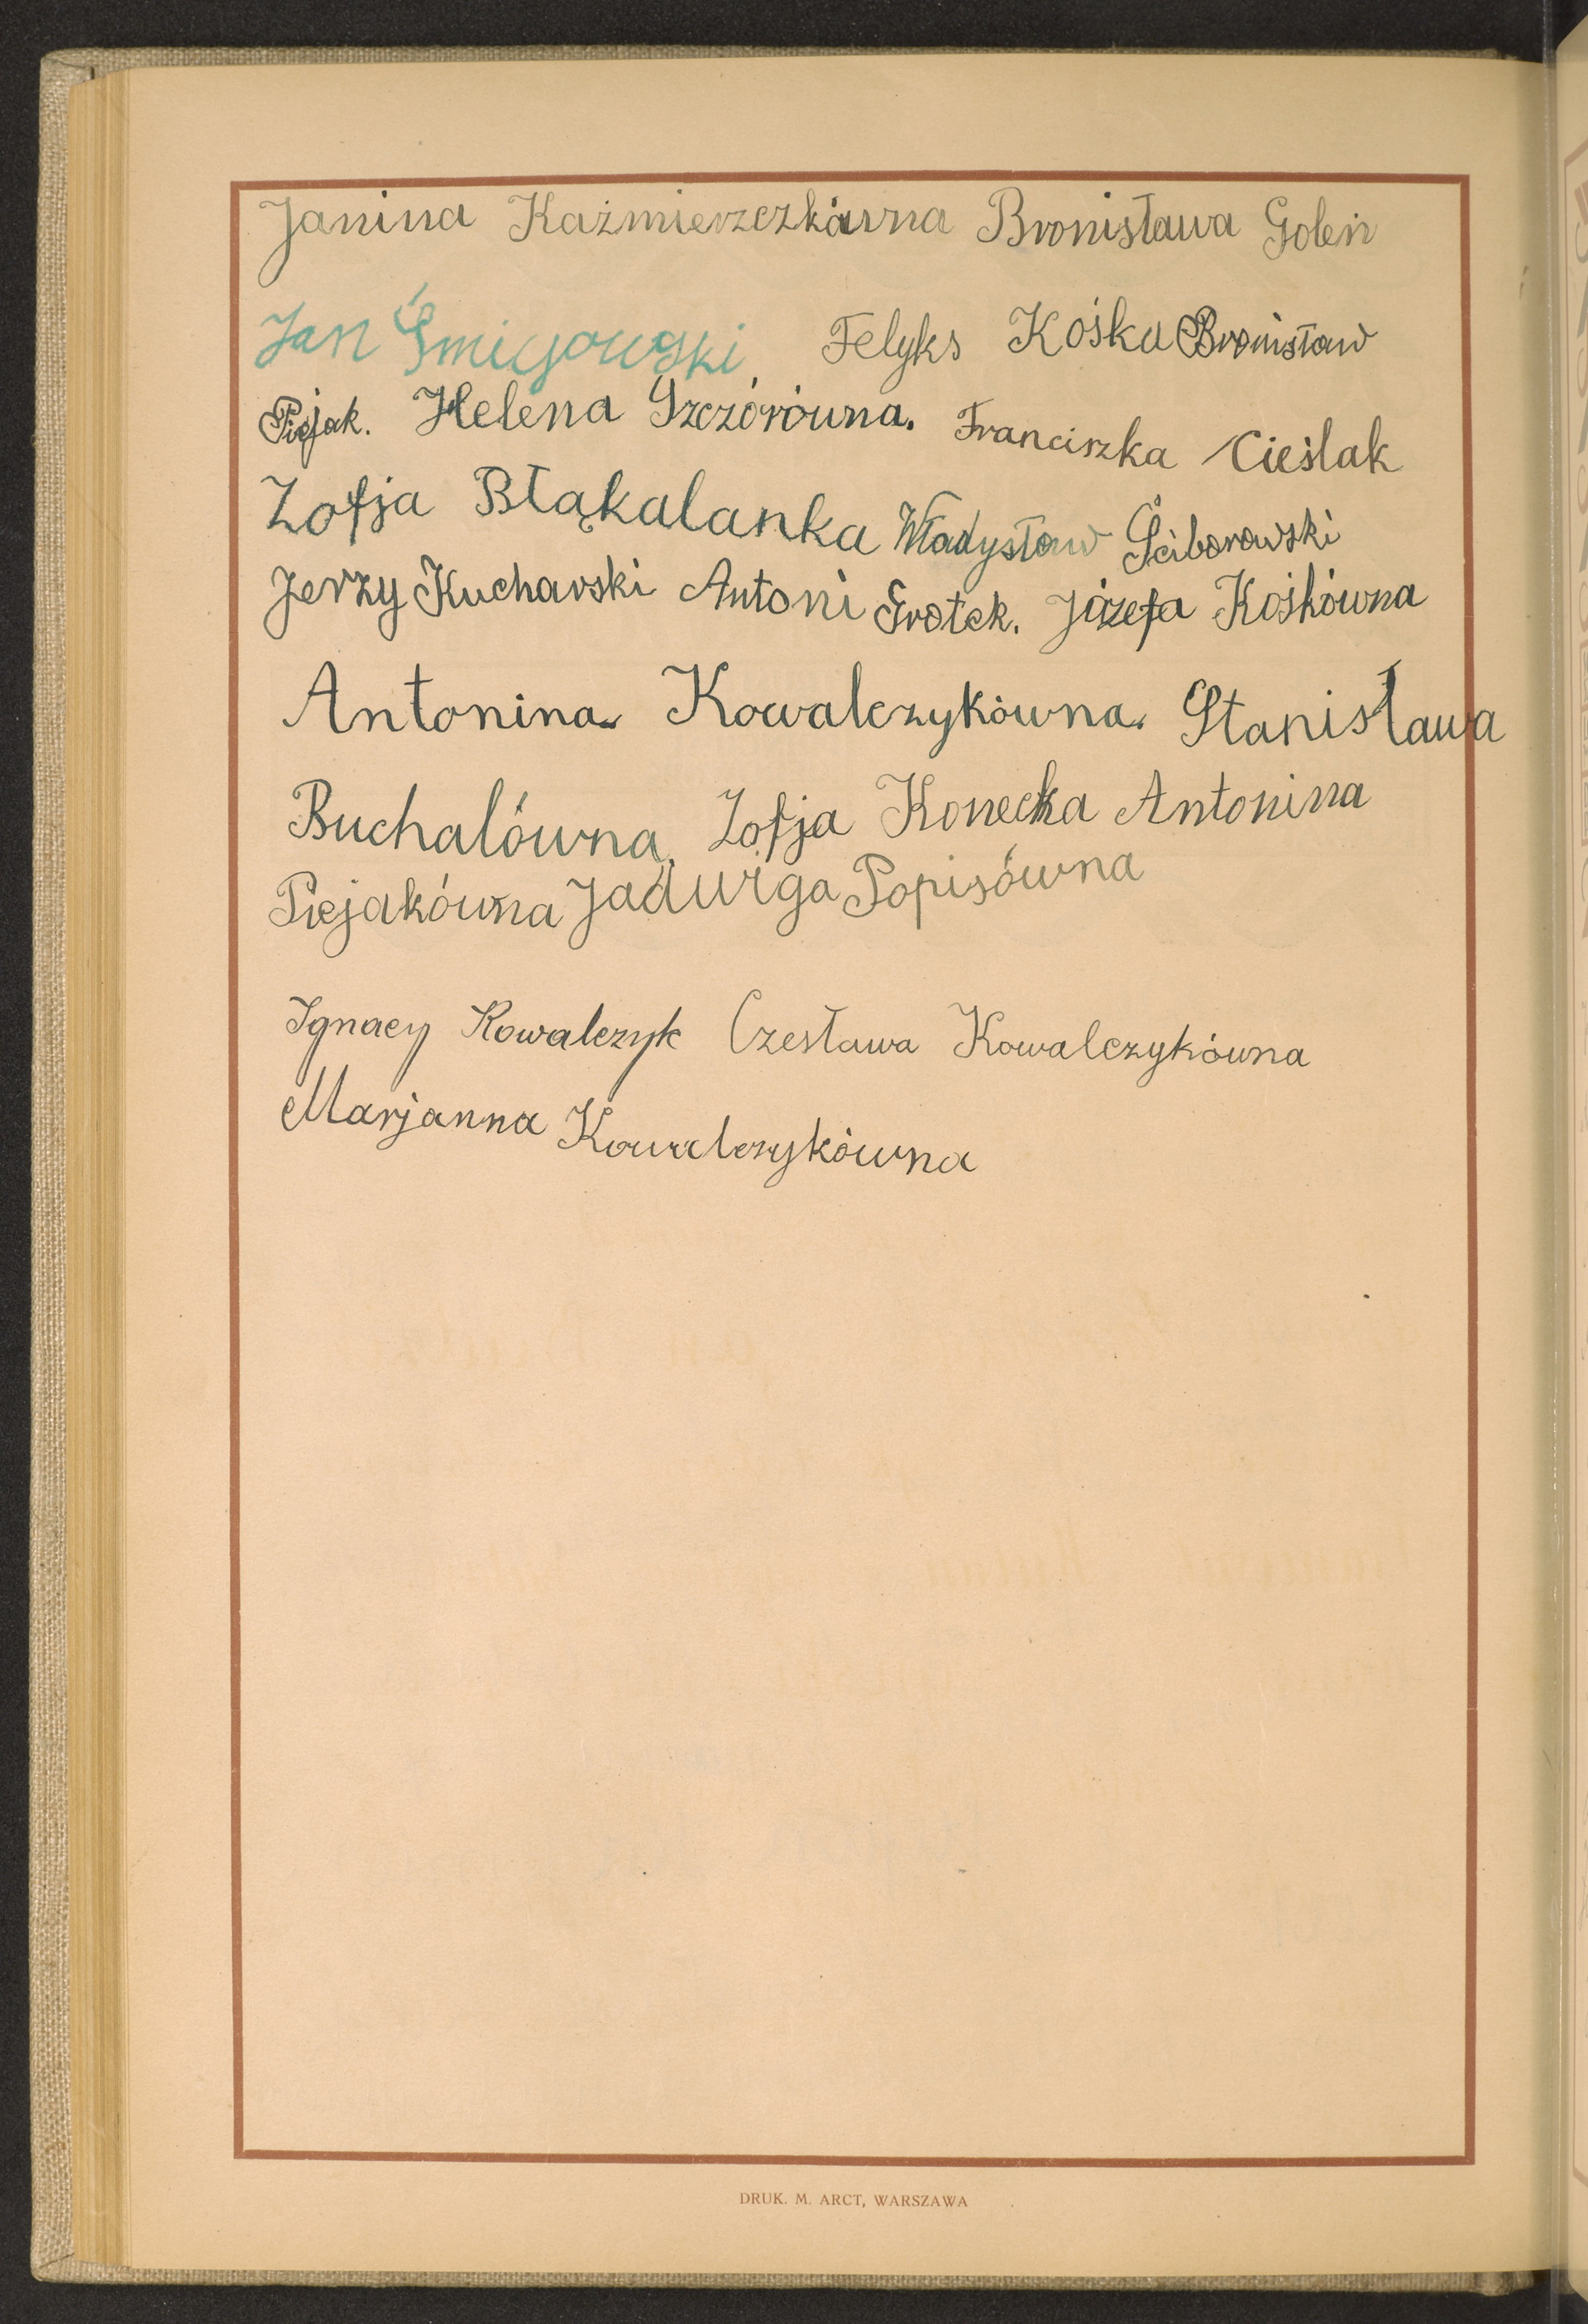 Janina Kaźmierzczkówna Bronisława Goleń
Jan Śmigowski, Felyks Kośka Bronisław
Piejak. Helena Szczórówna. Franciszka Cieślak
Zofja Błąkalanka Władysław Ściborowski
Jerzy Kucharski Antoni Grotek. Józefa Kośkówna
Antonina Kowalczykówna. Stanisława
Buchalówna, Zofja Konecka Antonina
Piejakówna Jadwiga Popisówna
Ignacy Kowalczyk Czesława Kowalczykówna
Marjanna Kowalczykówna
DRUK. M. ARCT, WARSZAWA